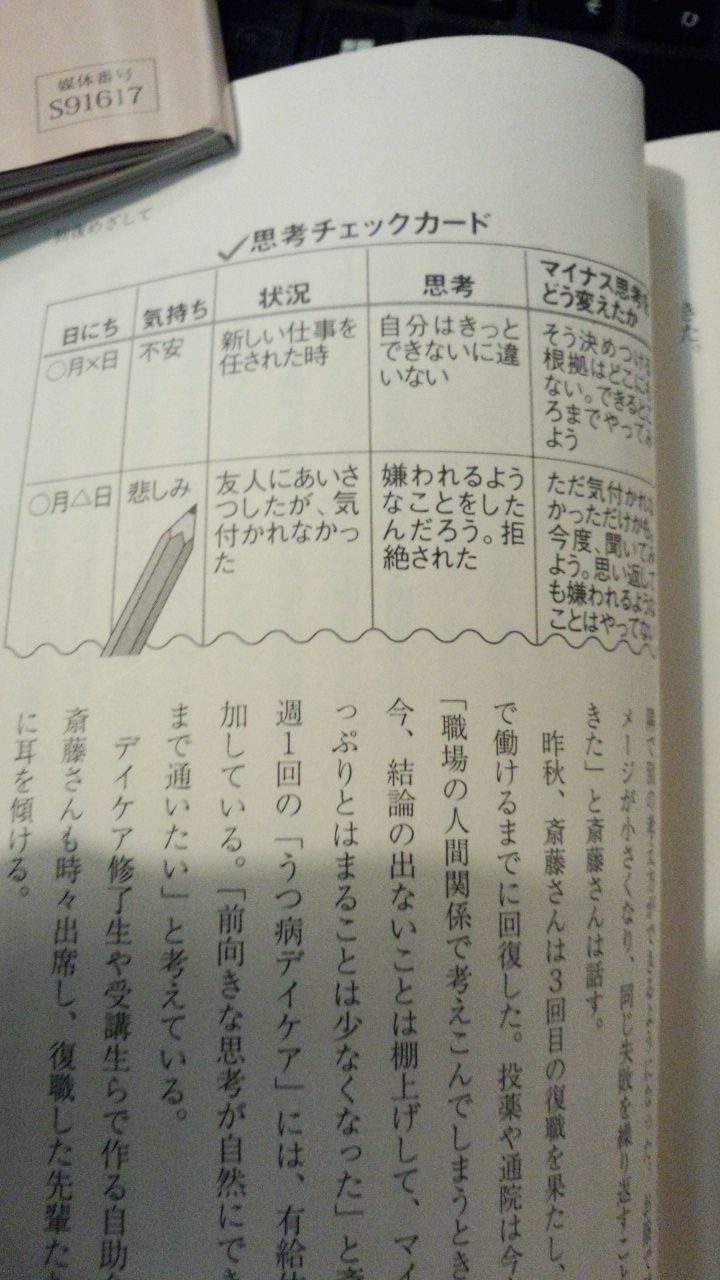 媒体番号
S91617
復めざして
思考チェックカード
日にち
気持ち
状況
思考
マイナス思考を
どう変えたか
○月×日
不安
新しい仕事を
任された時
自分はきっと
できないに違
いない
そう決めつける
根拠はどこにも
ない。できるとこ
ろまでやってみ
よう
○月△日
悲しみ
友人にあいさ
つしたが、気
付かれなかっ
た
嫌われるよう
なことをした
んだろう。拒
絶された
ただ気付かれな
かっただけかも。
今度、聞いてみ
よう。思い返して
も嫌われるような
ことはやってない
きた。
メージが小さくなり、同じ失敗を繰り返すこと
きた」と斎藤さんは話す。
昨秋、斎藤さんは3回目の復職を果たし、
で働けるまでに回復した。投薬や通院は今
「職場の人間関係で考えこんでしまうとき
今、結論の出ないことは棚上げして、マイ
っぷりとはまることは少なくなった」と
週1回の「うつ病デイケア」には、有給休
加している。「前向きな思考が自然にでき
まで通いたい」と考えている。
デイケア修了生や受講生らで作る自助
斎藤さんも時々出席し、復職した先輩た
に耳を傾ける。